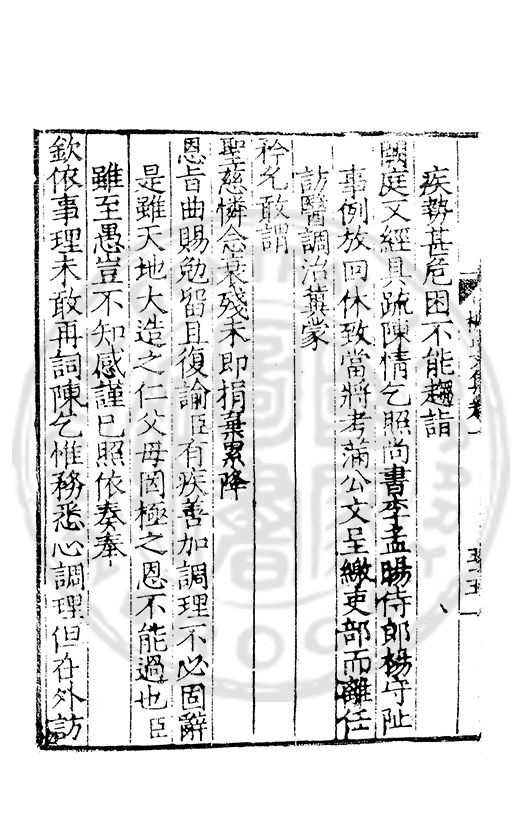 疾勢甚危困不能趨詣
闕庭又經具疏陳情乞照尚書李孟暘侍郎楊守阯
事例放回休致當將考滿公文呈繳吏部而離任
訪醫調治冀蒙
矜允敢謂
聖慈憐念衰殘未即捐棄累降
恩旨曲賜勉留且復諭臣有疾善加調理不必固辭
是雖天地大造之仁父母罔極之恩不能過也臣
雖至愚豈不知感謹已照依奏奉
欽依事理未敢再詞陳乞惟務悉心調理但在外訪